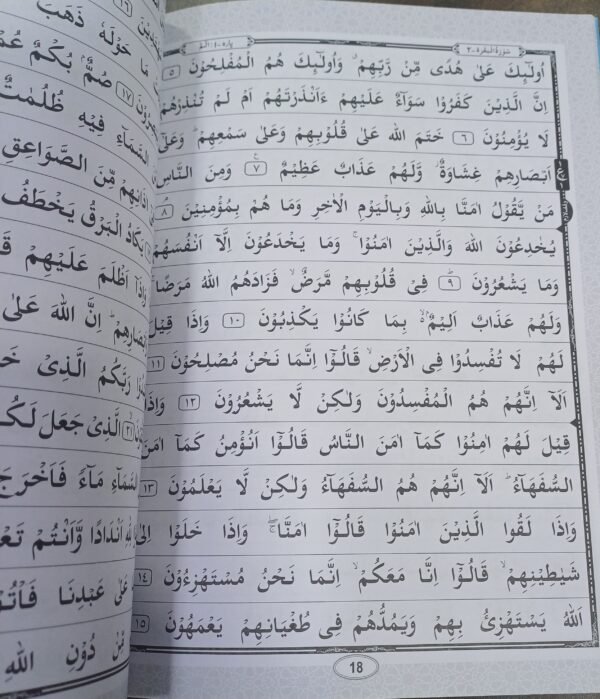 سُوْرَةُ الْبَقَرَة - ٢
اُولٰٓئِكَ عَلٰى هُدًى مِّنْ رَّبِّهِمْ ۙ وَاُولٰٓئِكَ هُمُ الْمُفْلِحُوْنَ ٥
اِنَّ الَّذِيْنَ كَفَرُوْا سَوَآءٌ عَلَيْهِمْ ءَاَنْذَرْتَهُمْ اَمْ لَمْ تُنْذِرْهُمْ
لَا يُؤْمِنُوْنَ ٦ خَتَمَ اللّٰهُ عَلٰى قُلُوْبِهِمْ وَعَلٰى سَمْعِهِمْ ۭ وَعَلٰٓى
اَبْصَارِهِمْ غِشَاوَةٌ ۡ وَّلَهُمْ عَذَابٌ عَظِيْمٌ ٧ وَمِنَ النَّاسِ
مَنْ يَّقُوْلُ اٰمَنَّا بِاللّٰهِ وَبِالْيَوْمِ الْاٰخِرِ وَمَا هُمْ بِمُؤْمِنِيْنَ ٨
يُخٰدِعُوْنَ اللّٰهَ وَالَّذِيْنَ اٰمَنُوْا ۚ وَمَا يَخْدَعُوْنَ اِلَّآ اَنْفُسَهُمْ
وَمَا يَشْعُرُوْنَ ٩ فِيْ قُلُوْبِهِمْ مَّرَضٌ ۙ فَزَادَهُمُ اللّٰهُ مَرَضًا
وَلَهُمْ عَذَابٌ اَلِيْمٌۢ ۙ بِمَا كَانُوْا يَكْذِبُوْنَ ١٠ وَاِذَا قِيْلَ
لَهُمْ لَا تُفْسِدُوْا فِي الْاَرْضِ ۙ قَالُوْٓا اِنَّمَا نَحْنُ مُصْلِحُوْنَ ١١
اَلَآ اِنَّهُمْ هُمُ الْمُفْسِدُوْنَ وَلٰكِنْ لَّا يَشْعُرُوْنَ ١٢ وَاِذَا
قِيْلَ لَهُمْ اٰمِنُوْا كَمَآ اٰمَنَ النَّاسُ قَالُوْٓا اَنُؤْمِنُ كَمَآ اٰمَنَ
السُّفَهَآءُ ۭ اَلَآ اِنَّهُمْ هُمُ السُّفَهَآءُ وَلٰكِنْ لَّا يَعْلَمُوْنَ ١٣
وَاِذَا لَقُوا الَّذِيْنَ اٰمَنُوْا قَالُوْٓا اٰمَنَّا ۖۚ وَاِذَا خَلَوْا اِلٰى
شَيٰطِيْنِهِمْ ۙ قَالُوْٓا اِنَّا مَعَكُمْ ۙ اِنَّمَا نَحْنُ مُسْتَهْزِءُوْنَ ١٤
اَللّٰهُ يَسْتَهْزِئُ بِهِمْ وَيَمُدُّهُمْ فِيْ طُغْيَانِهِمْ يَعْمَهُوْنَ ١٥
18
١٦
مَا حَوْلَهٗ ذَهَبَ
١٧ صُمٌّۢ بُكْمٌ
السَّمَآءِ فِيْهِ ظُلُمٰتٌ
اٰذَانِهِمْ مِّنَ الصَّوَاعِقِ
يَكَادُ الْبَرْقُ يَخْطَفُ
وَاِذَآ اَظْلَمَ عَلَيْهِمْ
اِنَّ اللّٰهَ عَلٰى
رَبَّكُمُ الَّذِيْ
٢١ الَّذِيْ جَعَلَ لَكُمُ
السَّمَآءِ مَآءً فَاَخْرَجَ
لِلّٰهِ اَنْدَادًا وَّاَنْتُمْ
عَلٰى عَبْدِنَا فَاْتُوْا
مِّنْ دُوْنِ اللّٰهِ